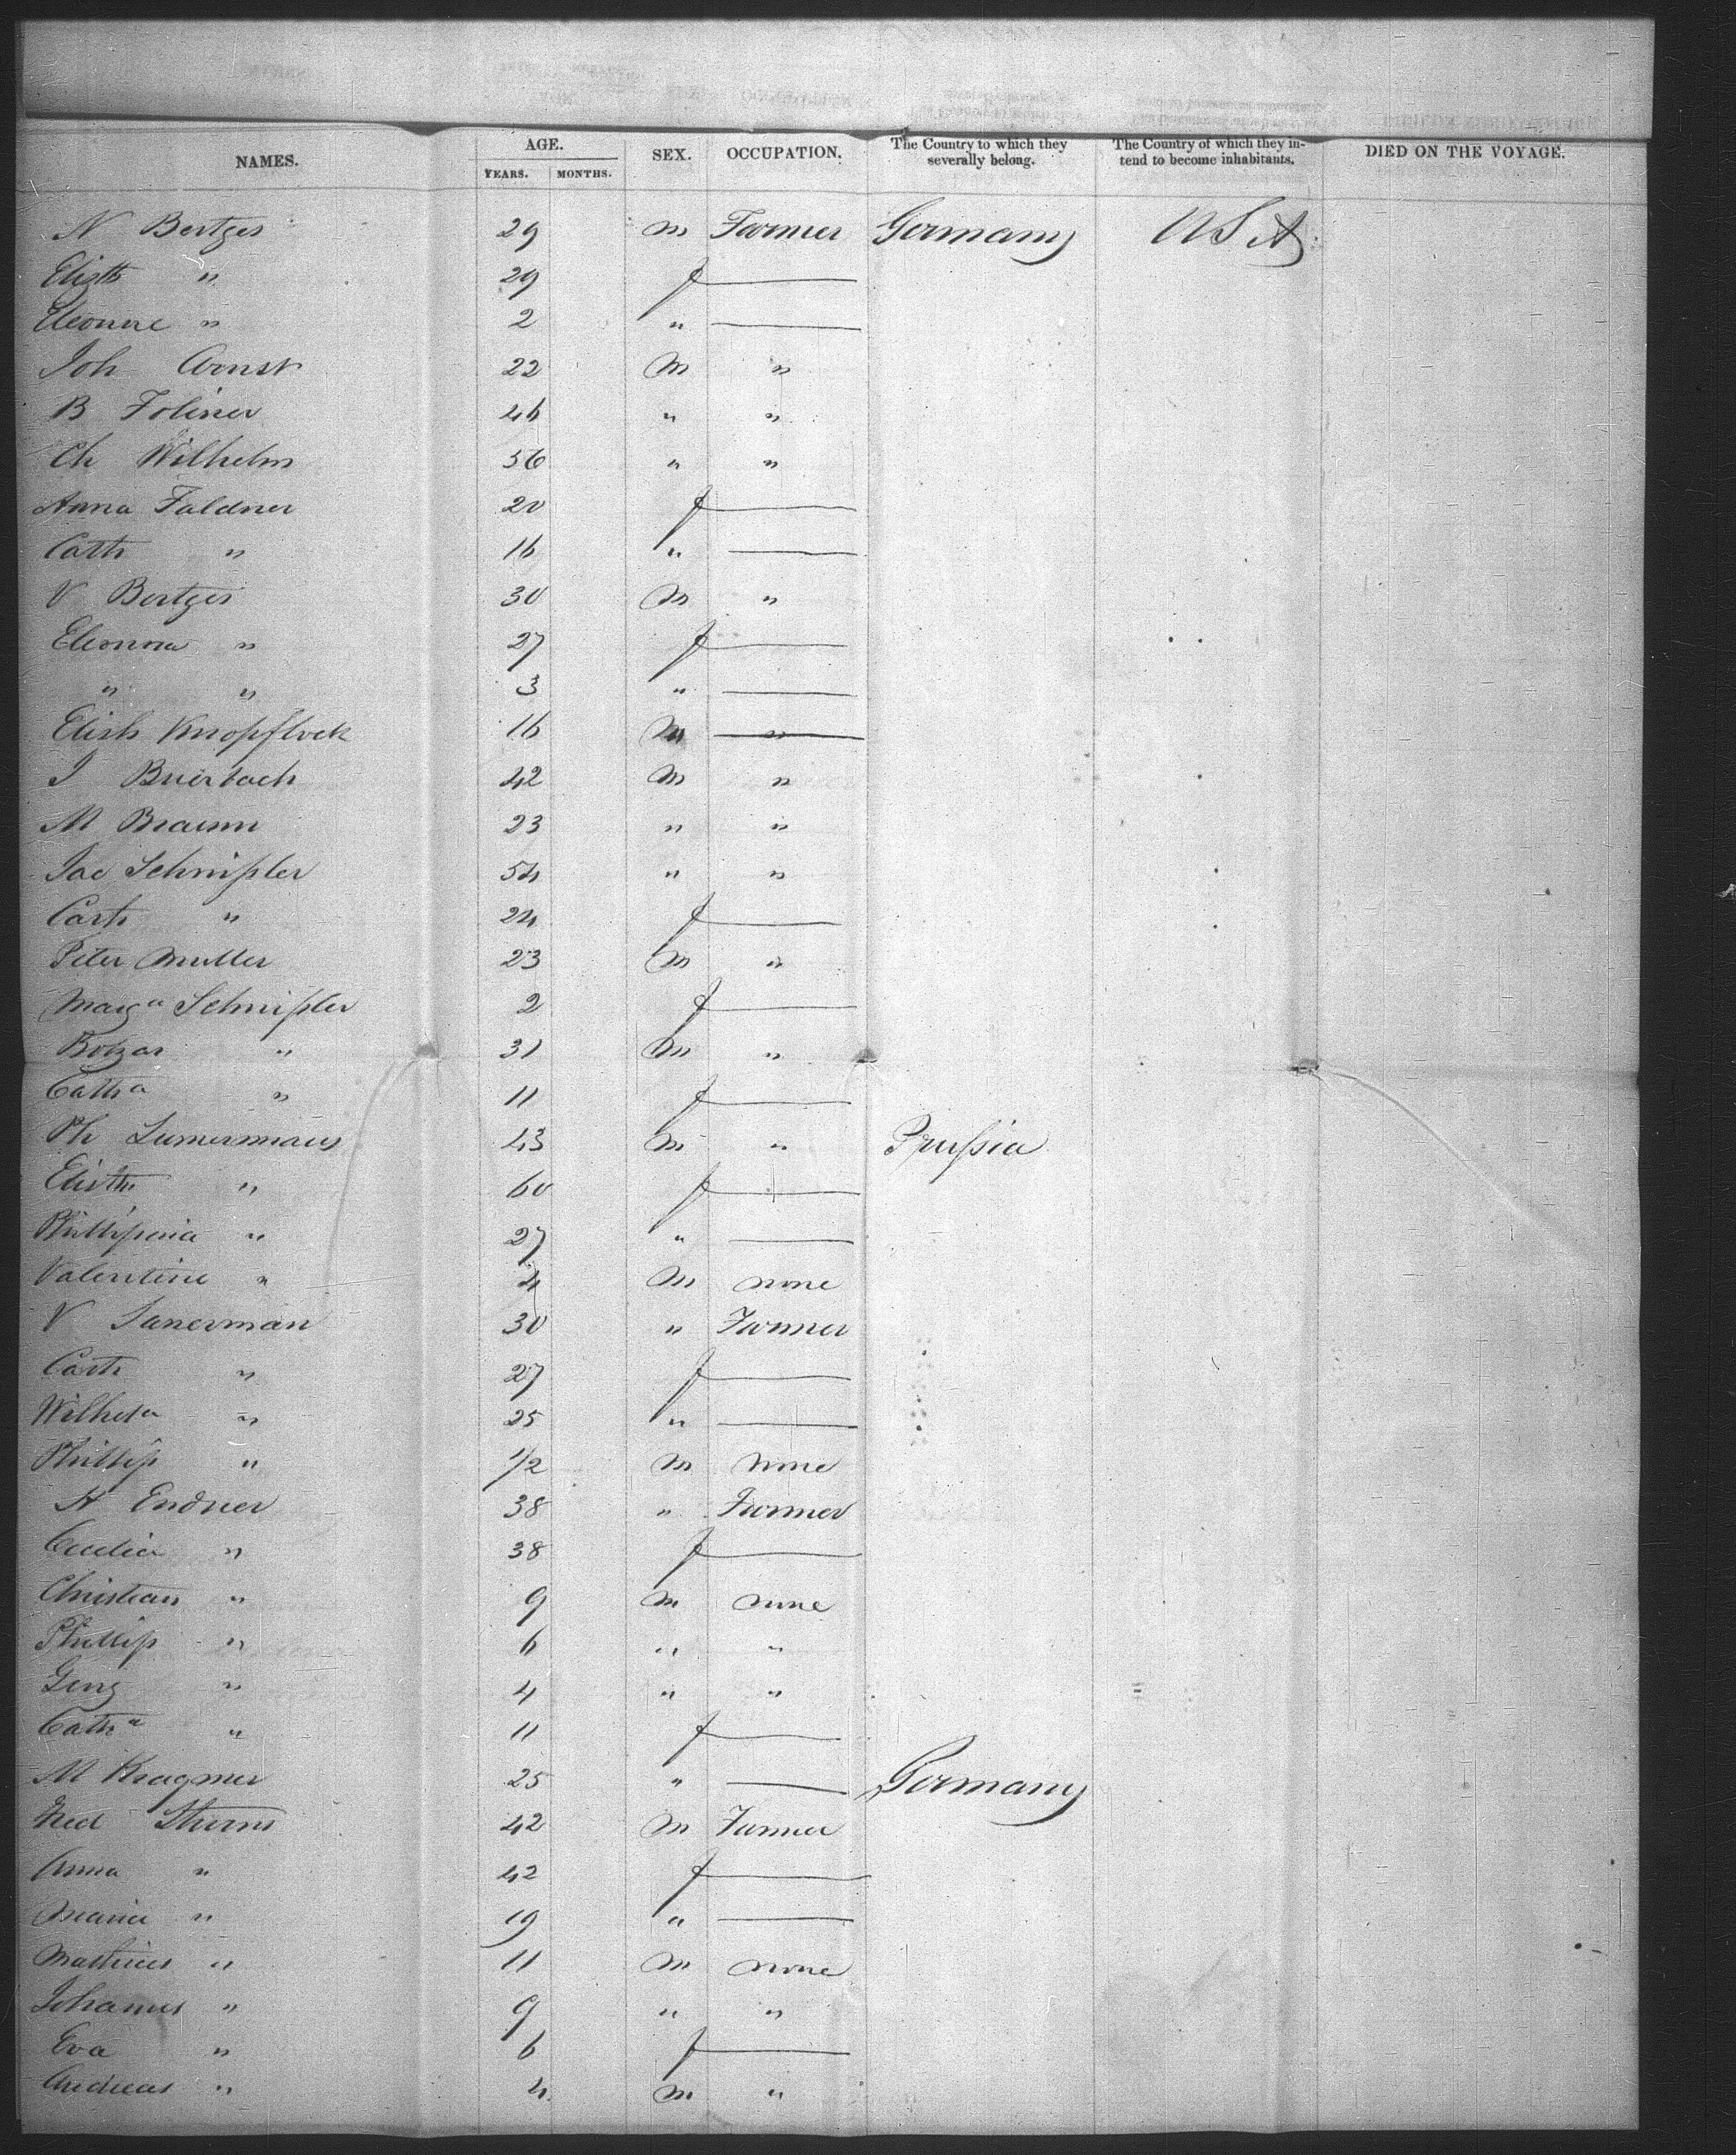 NAMES. AGE. SEX. OCCUPATION. The Country to which they severally belong. The Country of which they intend to become inhabitants. DIED ON THE VOYAGE.
YEARS. MONTHS.
N Bertges 29 m Farmer Germany USA
Elizth " 29 f —
Eleonore " 2 " —
Joh Arnst 22 m "
B Foliner 46 " "
Ch Wilhelm 56 " "
Anna Faldner 20 f —
Cath " 16 " —
V Bertges 30 m "
Eleonora " 27 f —
" " 3 " —
Elish Knopflock 16 m "
J Buerbach 42 m "
M Braunn 23 " "
Jac Schnißler 54 " "
Cath " 24 f —
Peter Muller 23 m "
Marga Schnißler 2 f —
Botzar " 31 m "
Catha " 11 f —
Ph 43 m " Prußia
Elisth " 60 f —
Phillipena " 27 " —
Valentine " 4 m none
V Sanerman 30 " Farmer
Cath " 27 f —
Wilhela " 25 " —
Phillip " 1/2 m none
A Endner 38 " Farmer
Cecelia " 38 f —
Christian " 9 m none
Phillip " 6 " "
Geng " 4 " "
Catha " 11 f —
M Kragmer 25 " — Germany
Fred Sturm 42 m Farmer
Anna " 42 f —
Maria " 19 " —
Mathias " 11 m none
Johannes " 9 " "
Eva " 6 f —
Andreas " 4 m "